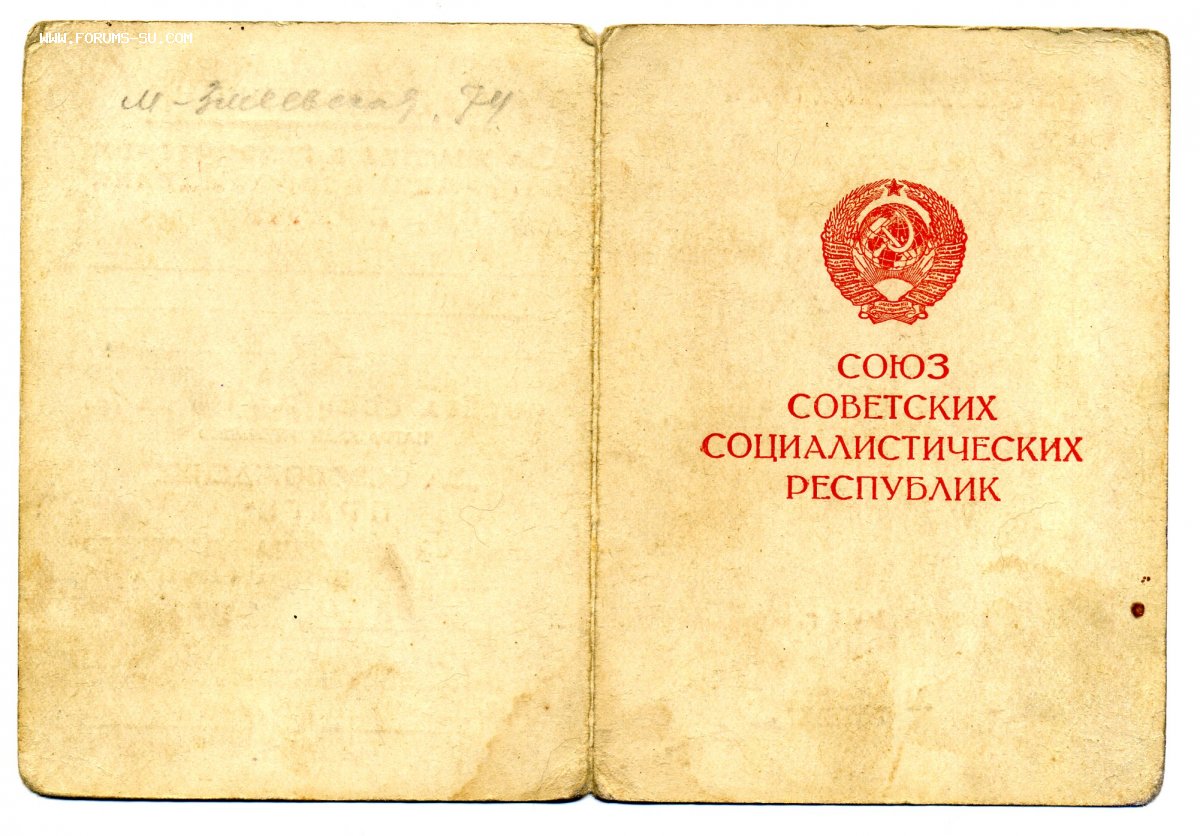 WWW.FORUMS-SU.COM
М-Змиевская, 74
СОЮЗ
СОВЕТСКИХ
СОЦИАЛИСТИЧЕСКИХ
РЕСПУБЛИК